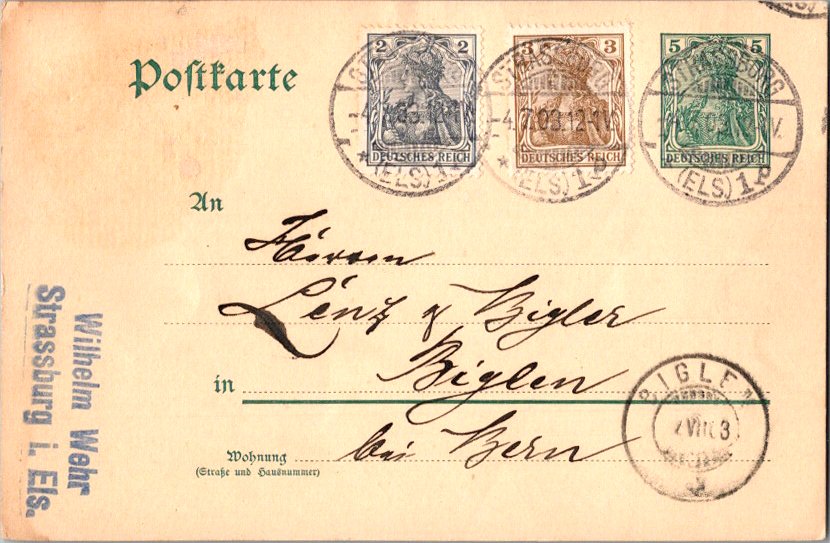 Postkarte
2 2
DEUTSCHES REICH
3 3
DEUTSCHES REICH
5 5
DEUTSCHES REICH
STRASSBURG
4.7.03.12-1V.
* (ELS) 1
An
Herren
Lenz & Bigler
in Biglen
Wohnung
(Straße und Hausnummer)
bei Bern
BIGLEN
VII 03
Wilhelm Wehr
Strassburg i. Els.